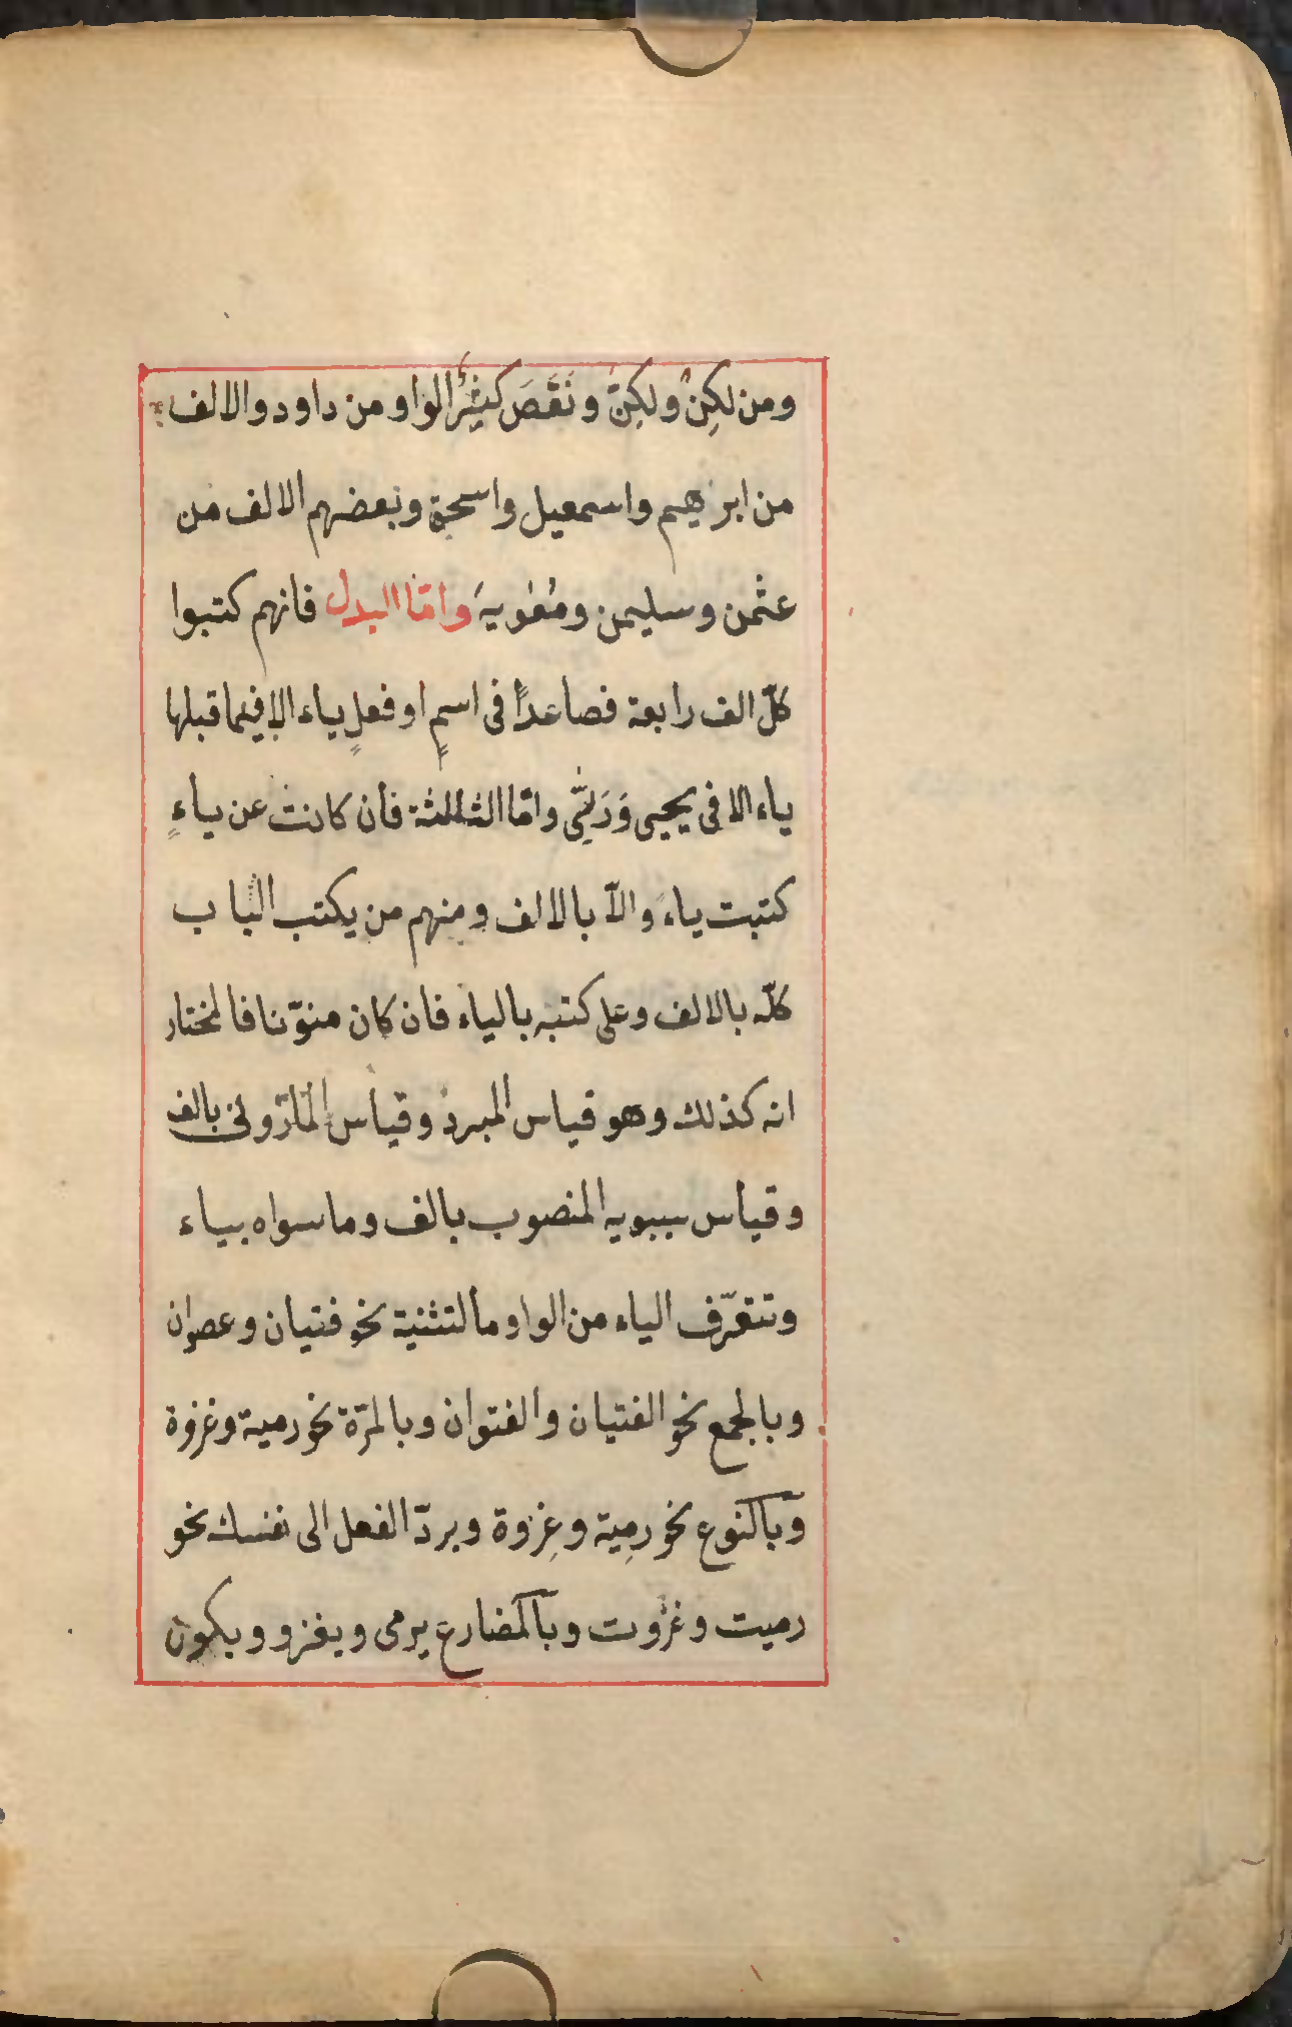 ومن لكِنْ ولكِنّ ونَقَصَ كثِيْرٌ الواو من داود والالف
من ابرهيم واسمعيل واسحق وبعضهم الالف من
عثمن وسليمن ومُعٰوية وامّا البدل فانهم كتبوا
كلّ الف رابعة فصاعدًا فى اسمٍ او فعلٍ ياء الا فيما قبلها
ياء الا فى يحيى وَرَيّى وامّا الثالثة فان كانت عن ياءٍ
كتبت ياء والّا بالالف ومنهم من يكتب الباب
كلّه بالالف وعلى كتبه بالياء فان كان منوّنا فالمختار
انه كذلك وهو قياس المبرد وقياس المازنى بالف
وقياس سيبويه المنصوب بالف وما سواه بياء
وتتعرّف الياء من الواو بالتثنية نحو فتيان وعصوان
وبالجمع نحو الفتيان والفتوان وبالمرّة نحو رمية وغزوة
وبالنوع نحو رِمية وغِزوة وبردّ الفعل الى نفسك نحو
رميت وغزوت وبالمضارع يرمى ويغزو وبكون